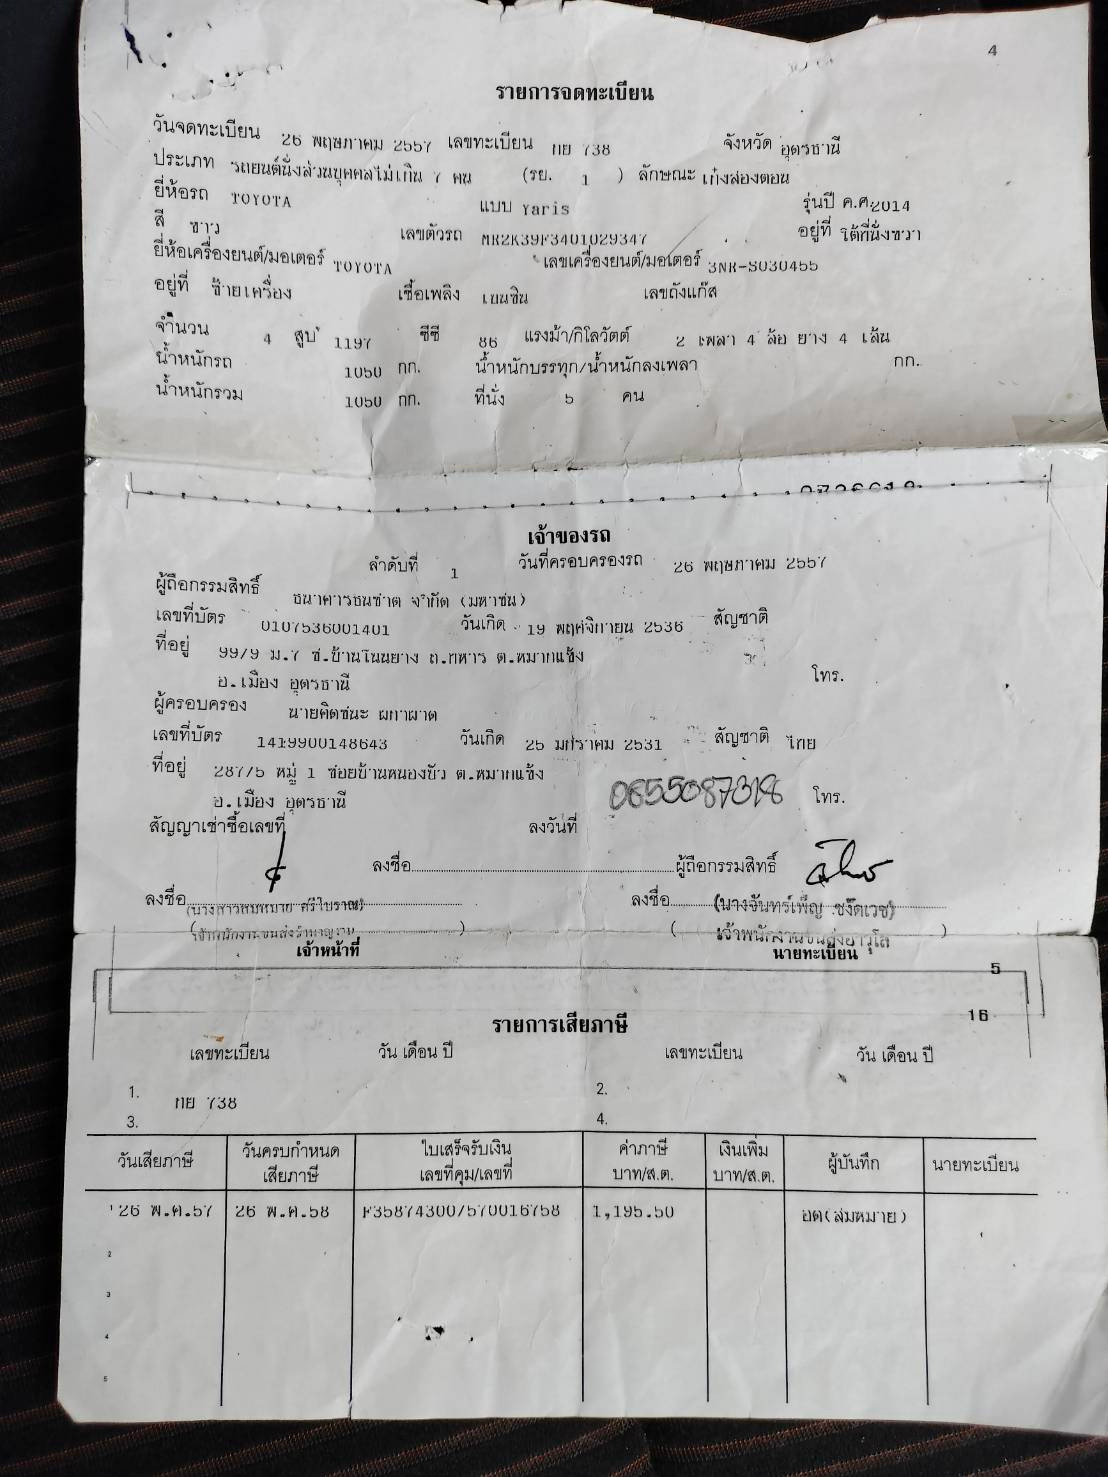 4
รายการจดทะเบียน
วันจดทะเบียน 26 พฤษภาคม 2557 เลขทะเบียน กย 738 จังหวัด อุดรธานี
ประเภท รถยนต์นั่งส่วนบุคคลไม่เกิน 7 คน (รย. 1 ) ลักษณะ เก๋งสองตอน
ยี่ห้อรถ TOYOTA แบบ Yaris รุ่นปี ค.ศ.2014
สี ขาว เลขตัวรถ MR2K39F3401029347 อยู่ที่ ใต้ที่นั่งขวา
ยี่ห้อเครื่องยนต์/มอเตอร์ TOYOTA เลขเครื่องยนต์/มอเตอร์ 3NR-S030455
อยู่ที่ ซ้ายเครื่อง เชื้อเพลิง เบนซิน เลขถังแก๊ส
จำนวน 4 สูบ 1197 ซีซี 86 แรงม้า/กิโลวัตต์ 2 เพลา 4 ล้อ ยาง 4 เส้น
น้ำหนักรถ 1050 กก. น้ำหนักบรรทุก/น้ำหนักลงเพลา กก.
น้ำหนักรวม 1050 กก. ที่นั่ง 5 คน
เจ้าของรถ
ลำดับที่ 1 วันที่ครอบครองรถ 26 พฤษภาคม 2557
ผู้ถือกรรมสิทธิ์ ธนาคารธนชาต จำกัด (มหาชน)
เลขที่บัตร 0107536001401 วันเกิด 19 พฤศจิกายน 2536 สัญชาติ
ที่อยู่ 99/9 ม.7 ซ.บ้านโนนยาง ถ.ทหาร ต.หมากแข้ง
อ.เมือง อุดรธานี โทร.
ผู้ครอบครอง นายคิดชนะ ผกาผาด
เลขที่บัตร 1419900148643 วันเกิด 25 มกราคม 2531 สัญชาติ ไทย
ที่อยู่ 287/5 หมู่ 1 ซอยบ้านหนองบัว ต.หมากแข้ง
อ.เมือง อุดรธานี 0855087318 โทร.
สัญญาเช่าซื้อเลขที่ ลงวันที่
ลงชื่อ ผู้ถือกรรมสิทธิ์
ลงชื่อ ลงชื่อ (นางจันทร์เพ็ญ ชงัดเวช)
เจ้าหน้าที่ นายทะเบียน
5
16
รายการเสียภาษี
เลขทะเบียน วัน เดือน ปี เลขทะเบียน วัน เดือน ปี
1. กย 738 2.
3. 4.
วันเสียภาษี วันครบกำหนดเสียภาษี ใบเสร็จรับเงิน เลขที่คุม/เลขที่ ค่าภาษี บาท/ส.ต. เงินเพิ่ม บาท/ส.ต. ผู้บันทึก นายทะเบียน
26 พ.ค.57 26 พ.ค.58 F35874300/570016758 1,195.50 อด(สมหมาย)
2
3
4
5